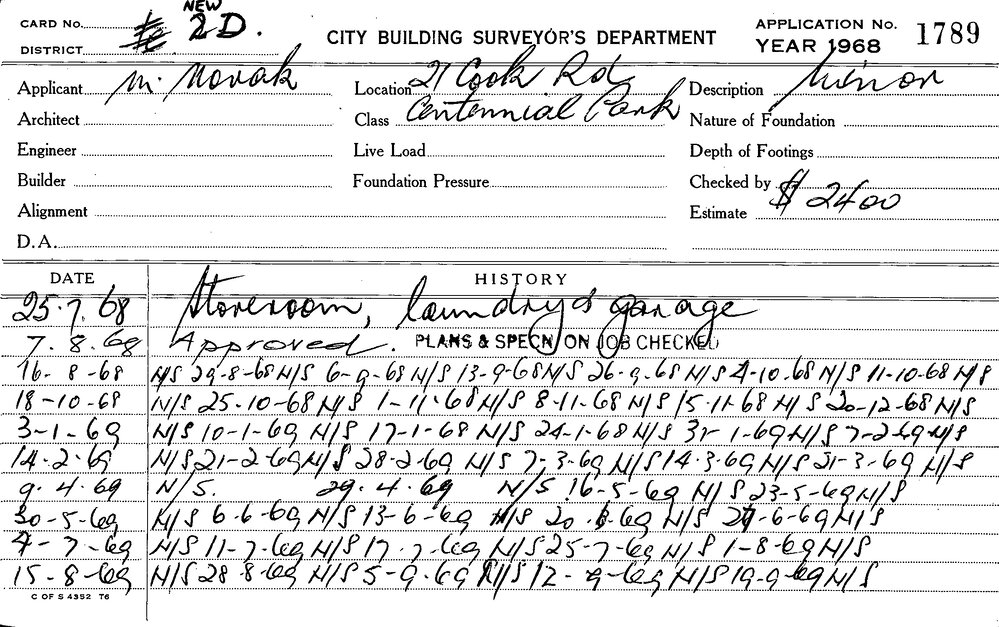 CARD No. NEW 2D.
DISTRICT
CITY BUILDING SURVEYOR'S DEPARTMENT
APPLICATION No. 1789
YEAR 1968
Applicant M. Novak Location 21 Cook Rd, Description Minor
Architect Class Centennial Park Nature of Foundation
Engineer Live Load Depth of Footings
Builder Foundation Pressure Checked by
Alignment Estimate $ 2400
D.A.
DATE HISTORY
25.7.68 Storeroom, laundry & garage
7.8.68 Approved. PLANS & SPECN ON JOB CHECKED
16-8-68 N/S 29-8-68 N/S 6-9-68 N/S 13-9-68 N/S 26-9-68 N/S 4-10-68 N/S 11-10-68 N/S
18-10-68 N/S 25-10-68 N/S 1-11-68 N/S 8-11-68 N/S 15-11-68 N/S 20-12-68 N/S
3-1-69 N/S 10-1-69 N/S 17-1-68 N/S 24-1-68 N/S 31-1-69 N/S 7-2-69 N/S
14-2-69 N/S 21-2-69 N/S 28-2-69 N/S 7-3-69 N/S 14-3-69 N/S 21-3-69 N/S
9.4.69 N/S. 29.4.69 N/S 16-5-69 N/S 23-5-69 N/S
30-5-69 N/S 6-6-69 N/S 13-6-69 N/S 20-6-69 N/S 27-6-69 N/S
4-7-69 N/S 11-7-69 N/S 17-7-69 N/S 25-7-69 N/S 1-8-69 N/S
15-8-69 N/S 28-8-69 N/S 5-9-69 N/S 12-9-69 N/S 19-9-69 N/S
C OF S 4352 76